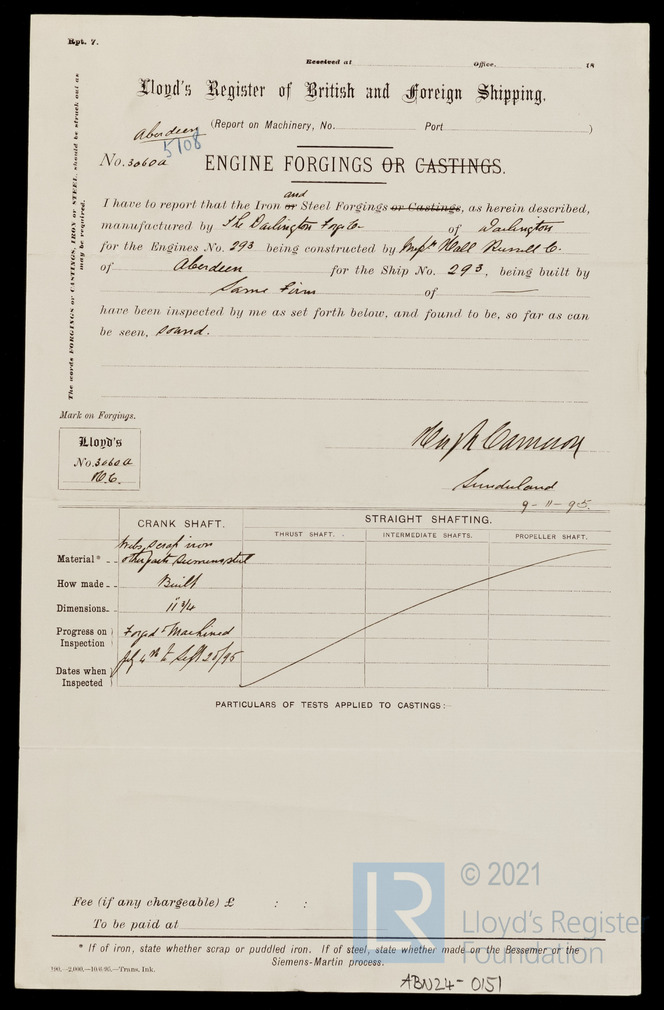 Rpt. 7.
Received at Office. 18
Lloyd's Register of British and Foreign Shipping.
(Report on Machinery, No. Port )
Aberdeen
5108
No. 3060a ENGINE FORGINGS OR CASTINGS.
and
I have to report that the Iron or Steel Forgings or Castings, as herein described,
manufactured by The Darlington Forge Co of Darlington
for the Engines No. 293 being constructed by Hall Russell Co.
of Aberdeen for the Ship No. 293, being built by
Same Firm of —
have been inspected by me as set forth below, and found to be, so far as can
be seen, sound.
The words FORGINGS or CASTINGS, IRON or STEEL, should be struck out as
may be required.
Mark on Forgings.
Lloyd's
No. 3060a
H.C.
Hugh Cameron
Sunderland
9-11-95.
CRANK SHAFT. STRAIGHT SHAFTING.
THRUST SHAFT. INTERMEDIATE SHAFTS. PROPELLER SHAFT.
Webs, scrap iron
Material* other parts Siemens steel
How made Built
Dimensions 11 3/4"
Progress on Inspection Forged & Machined
Dates when Inspected July 4th to Sept 20/95
PARTICULARS OF TESTS APPLIED TO CASTINGS:—
Fee (if any chargeable) £ : :
To be paid at
* If of iron, state whether scrap or puddled iron. If of steel, state whether made on the Bessemer or the
Siemens-Martin process.
100.—2,000.—10/6/95.—Trans. Ink.
ABN24-0151
LR
© 2021
Lloyd's Register
Foundation